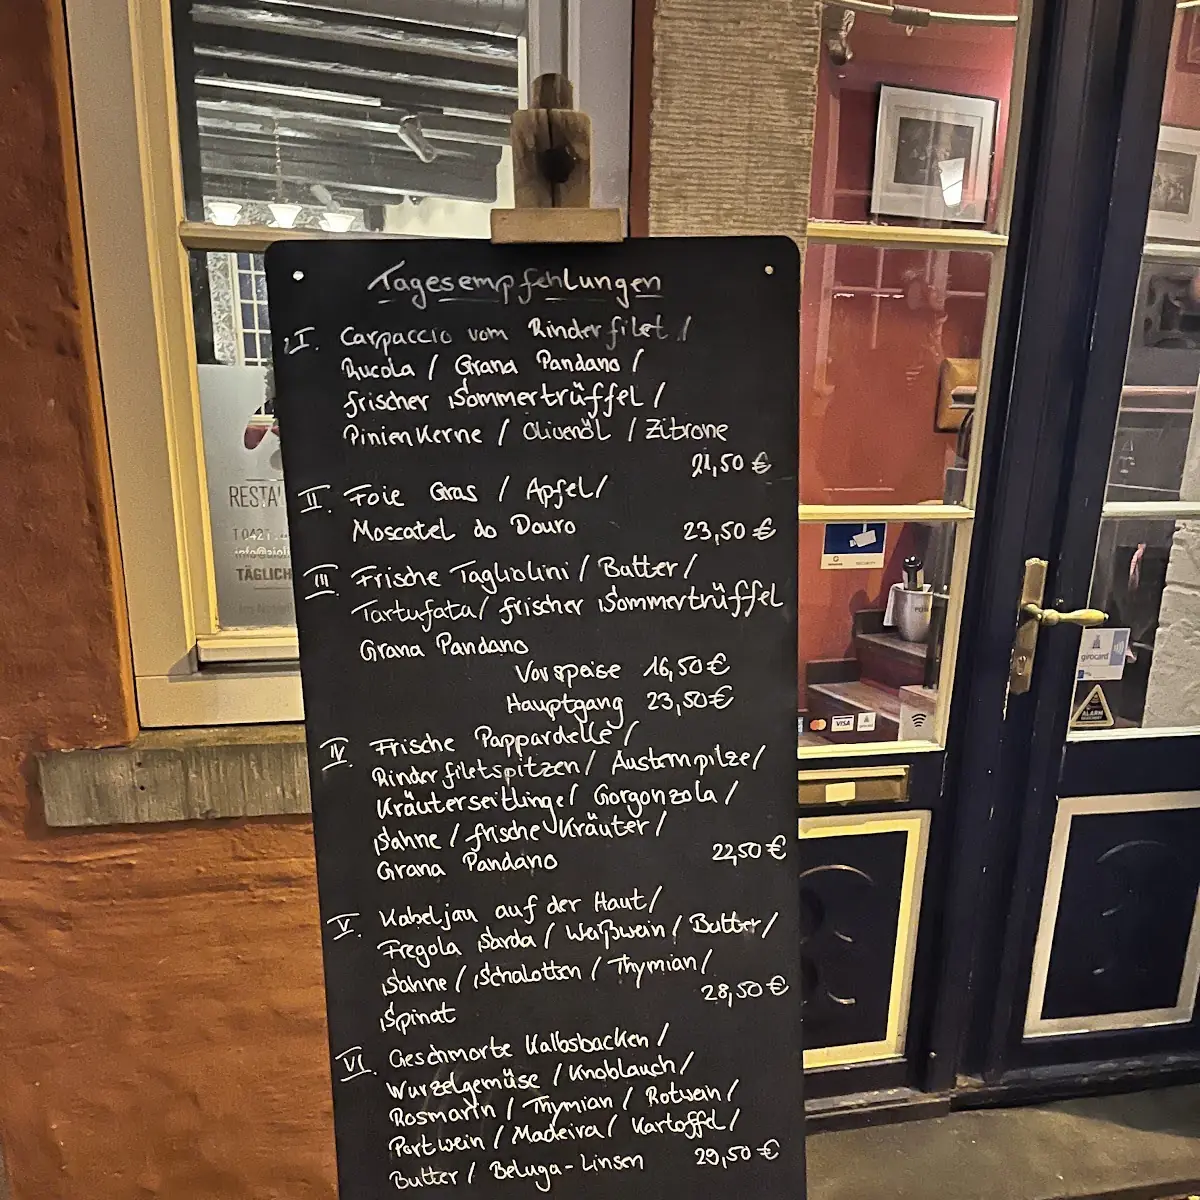 Tagesempfehlungen
I. Carpaccio vom Rinderfilet /
Rucola / Grana Pandano /
frischer Sommertrüffel /
Pinienkerne / Olivenöl / Zitrone
21,50 €
II. Foie Gras / Apfel /
Moscatel do Douro 23,50 €
III. Frische Tagliolini / Butter /
Tartufata / frischer Sommertrüffel
Grana Pandano
Vorspeise 16,50 €
Hauptgang 23,50 €
IV. Frische Pappardelle /
Rinderfiletspitzen / Austernpilze /
Kräuterseitlinge / Gorgonzola /
Sahne / frische Kräuter /
Grana Pandano 22,50 €
V. Kabeljau auf der Haut /
Fregola Sarda / Weißwein / Butter /
Sahne / Schalotten / Thymian /
Spinat 28,50 €
VI. Geschmorte Kalbsbacken /
Wurzelgemüse / Knoblauch /
Rosmarin / Thymian / Rotwein /
Portwein / Madeira / Kartoffel /
Butter / Beluga-Linsen 29,50 €
RESTA
T 0421
TÄGLICH
VISA
girocard
ALARM